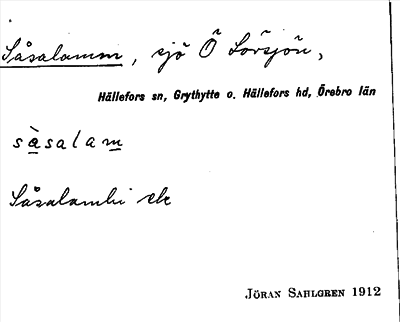 Såsalamm, sjö Ö Lövsjön,
Hällefors sn, Grythytte o. Hällefors hd, Örebro län
sàsalam
Såsalambi ek
JÖRAN SAHLGREN 1912